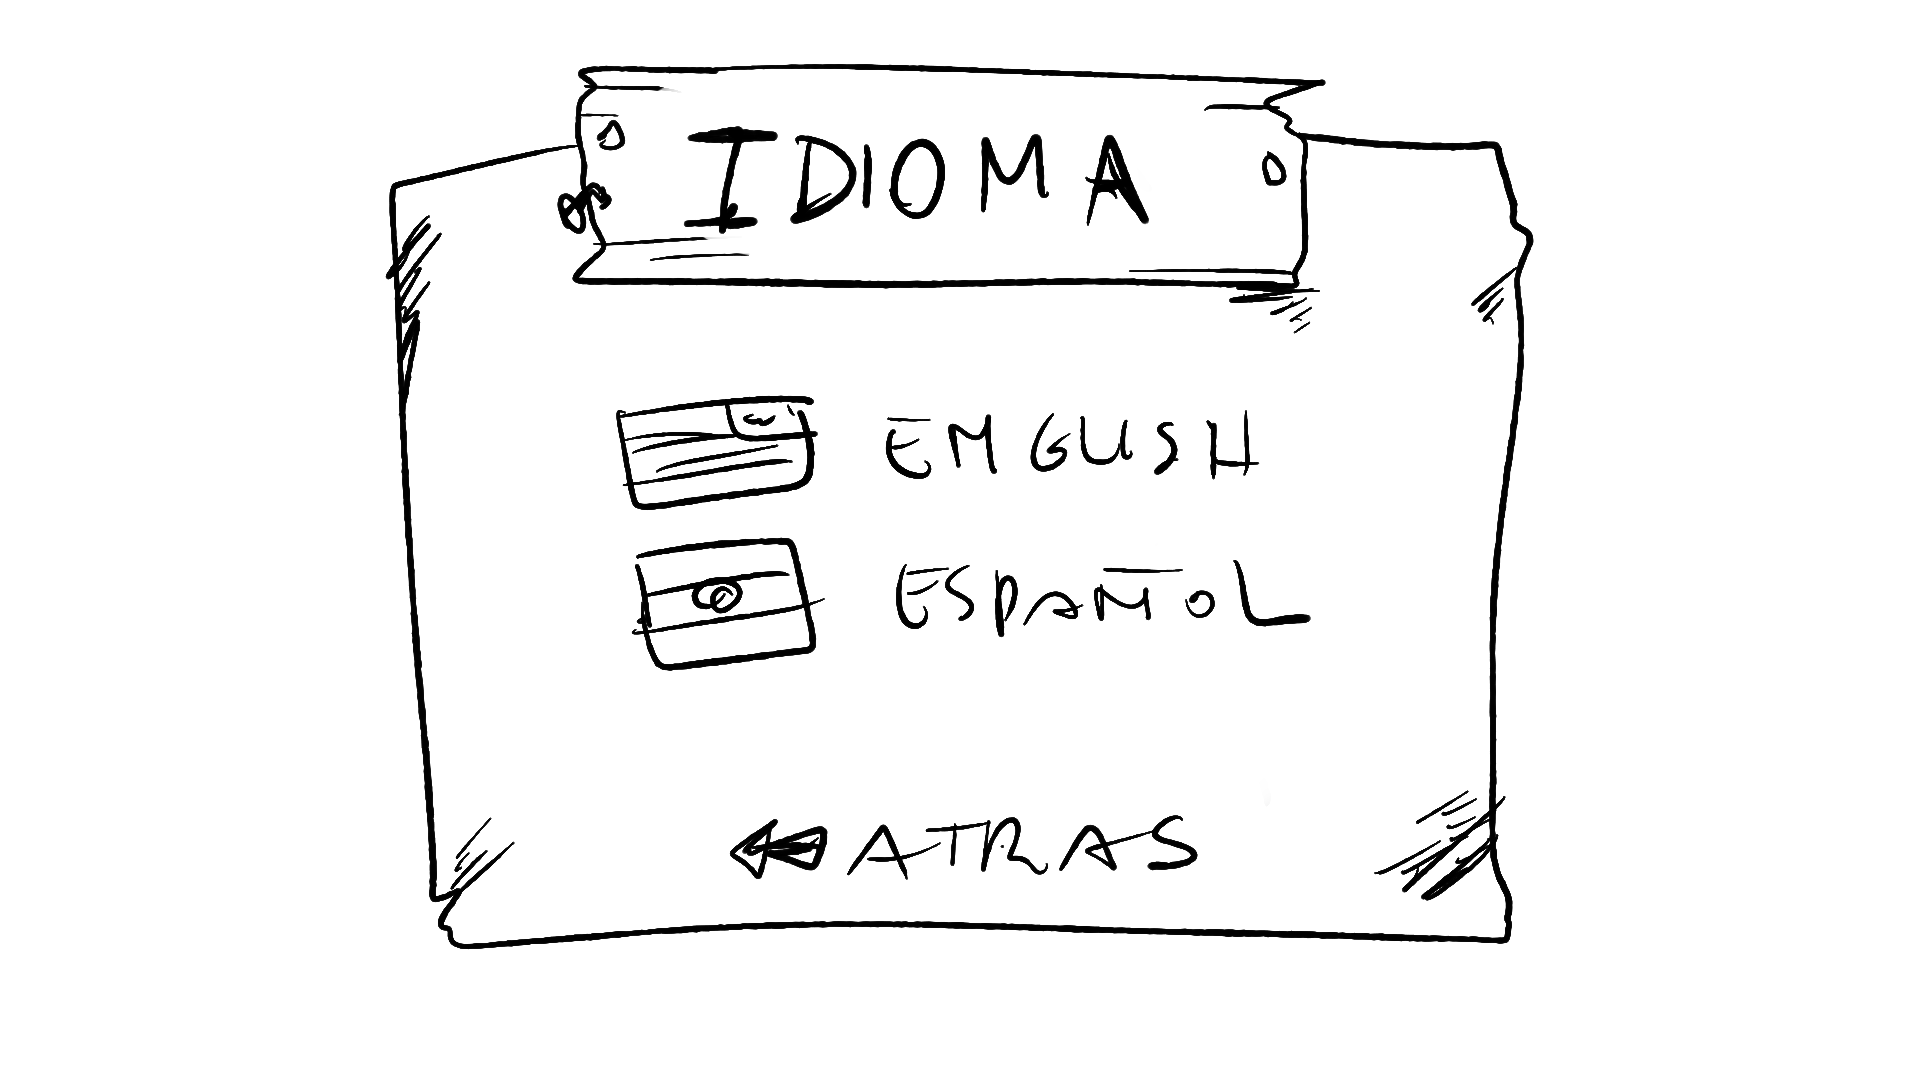 IDIOMA
ENGLISH
ESPAÑOL
ATRAS